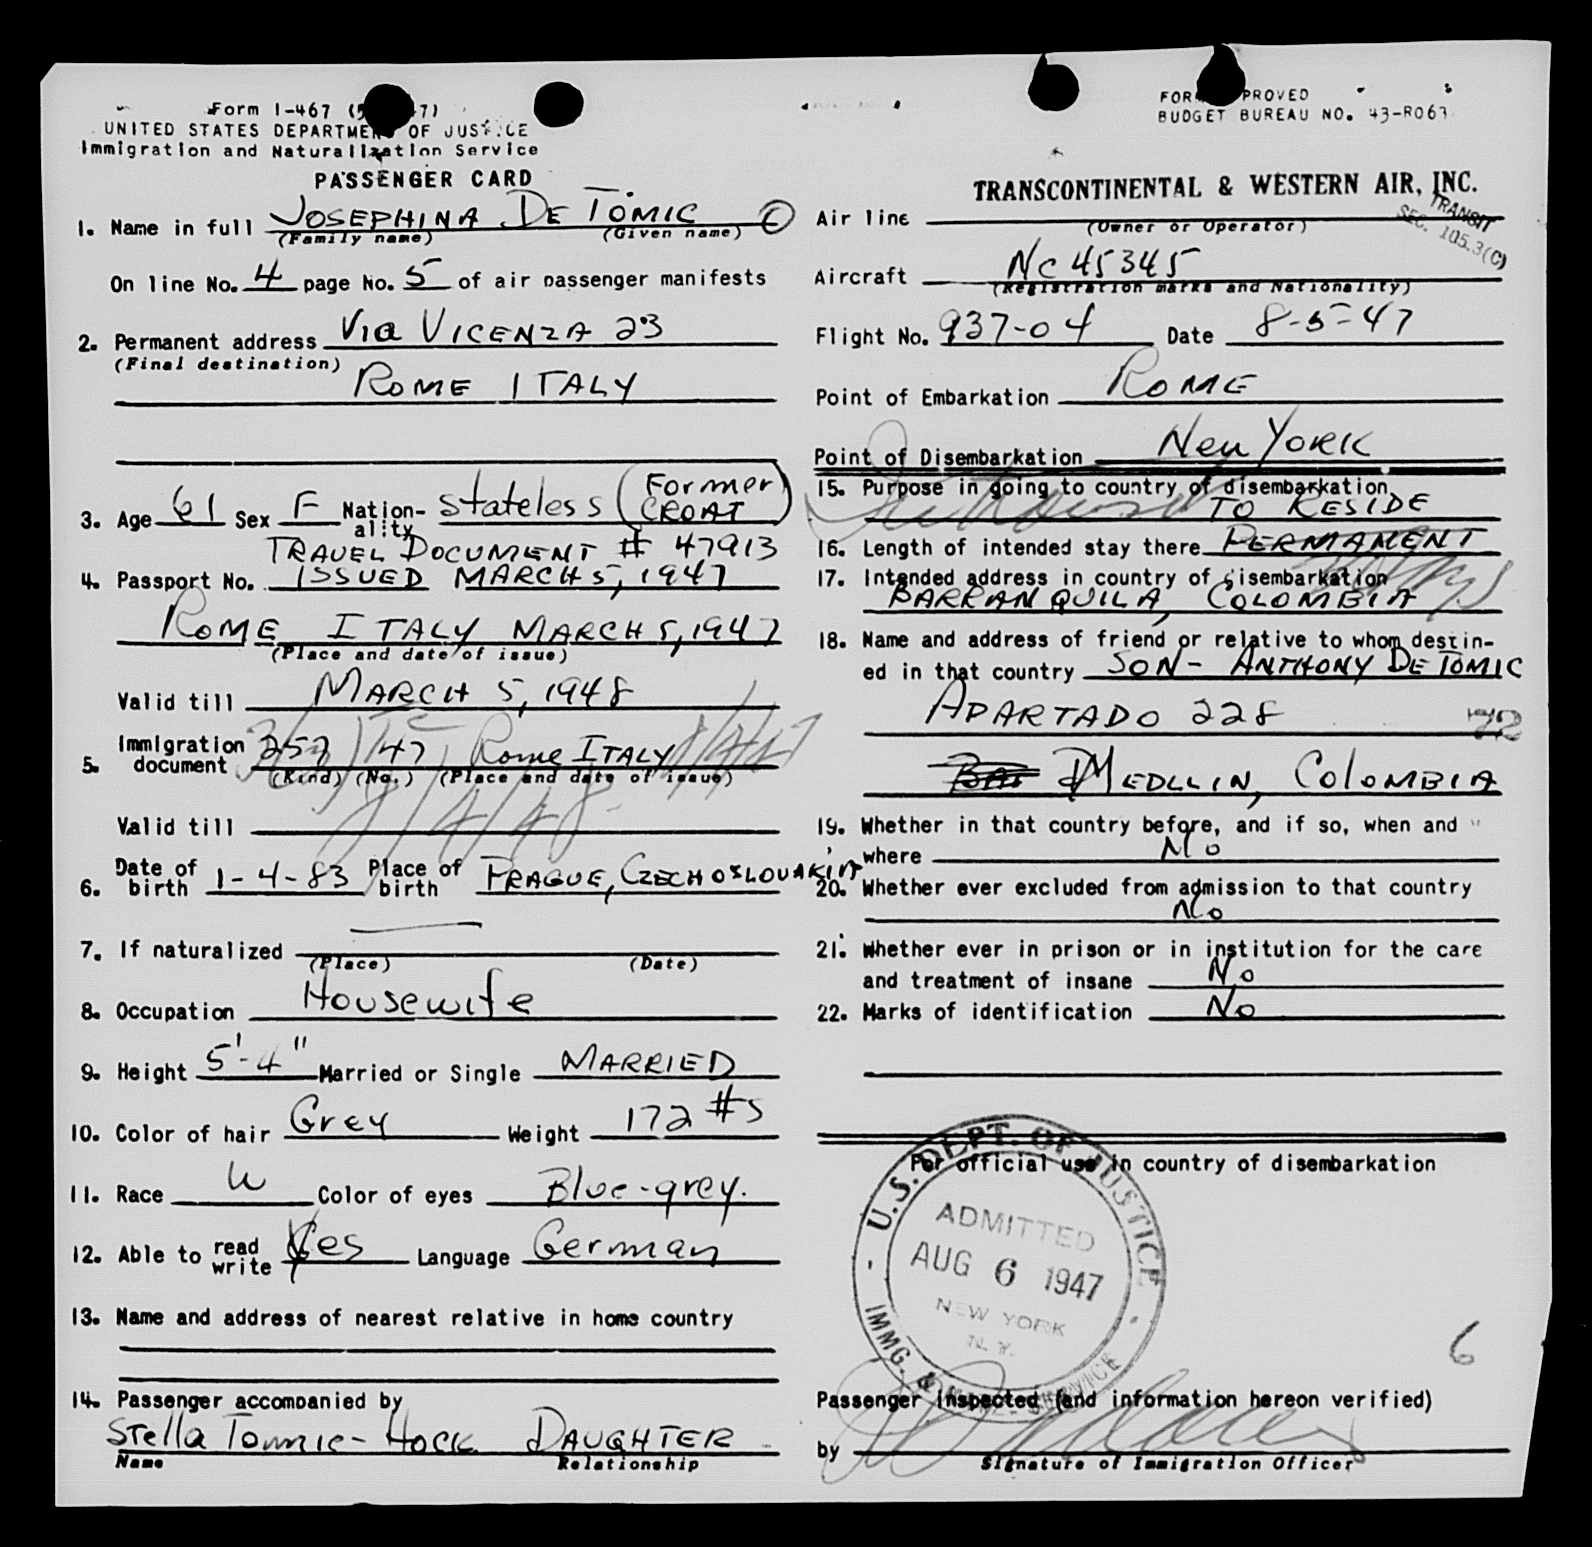 Form I-467
UNITED STATES DEPARTMENT OF JUSTICE
Immigration and Naturalization Service
PASSENGER CARD
1. Name in full JOSEPHINA DE TOMIC C
(Family name) (Given name)
On line No. 4 page No. 5 of air passenger manifests
2. Permanent address Via VICENZA 23
(Final destination)
ROME ITALY
3. Age 61 Sex F Nation-ality Stateless (Former CROAT)
TRAVEL DOCUMENT # 47913
4. Passport No. ISSUED MARCH 5, 1947
ROME ITALY MARCH 5, 1947
(Place and date of issue)
Valid till MARCH 5, 1948
5. Immigration document 257 47 Rome ITALY
(Kind) (No.) (Place and date of issue)
Valid till
6. Date of birth 1-4-83 Place of birth PRAGUE, CZECHOSLOVAKIA
7. If naturalized
(Place) (Date)
8. Occupation Housewife
9. Height 5'-4" Married or Single MARRIED
10. Color of hair Grey Weight 172 #s
11. Race W Color of eyes Blue-grey.
12. Able to read write Yes Language German
13. Name and address of nearest relative in home country
14. Passenger accompanied by
Stella Tommic-Hock DAUGHTER
Name Relationship
FORM APPROVED
BUDGET BUREAU NO. 43-R063
TRANSCONTINENTAL & WESTERN AIR, INC.
Air line
(Owner or Operator)
TRANSIT
SEC. 105.3(C)
Aircraft NC 45345
(Registration marks and Nationality)
Flight No. 937-04 Date 8-5-47
Point of Embarkation ROME
Point of Disembarkation New YORK
15. Purpose in going to country of disembarkation
TO RESIDE
16. Length of intended stay there PERMANENT
17. Intended address in country of disembarkation
BARRANQUILA, COLOMBIA
18. Name and address of friend or relative to whom destin-
ed in that country SON- ANTHONY DE TOMIC
APARTADO 228
MEDLLIN, COLOMBIA
19. Whether in that country before, and if so, when and
where No
20. Whether ever excluded from admission to that country
No
21. Whether ever in prison or in institution for the care
and treatment of insane No
22. Marks of identification No
For official use in country of disembarkation
U.S. DEPT. OF JUSTICE
ADMITTED
AUG 6 1947
NEW YORK
N.Y.
IMMG. & NATZ. SERVICE
6
Passenger inspected (and information hereon verified)
by
Signature of Immigration Officer